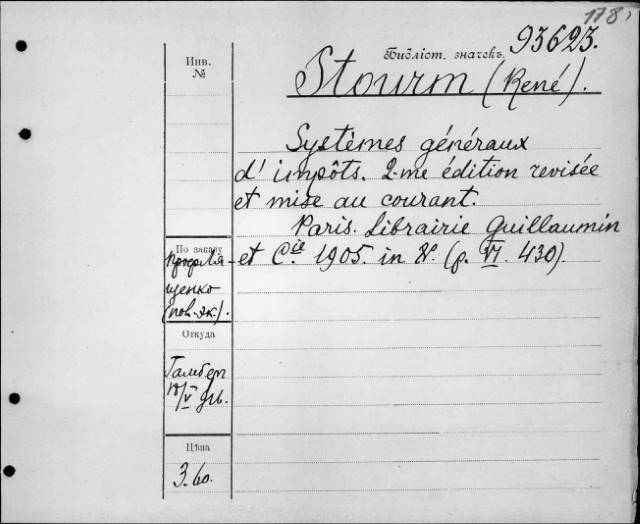 178
Библіот. значекъ 93623.
Stourm (René).
Инв.
№
Systèmes généraux
d'impôts. 2-me édition revisée
et mise au courant.
Paris. Librairie Guillaumin
et Cie. 1905. in 8°. (p. VI. 430).
По заказу
Проф. Ля-
щенко
(пов. эк.).
Откуда
Гамбер
18/V 916.
Цѣна
3.60.